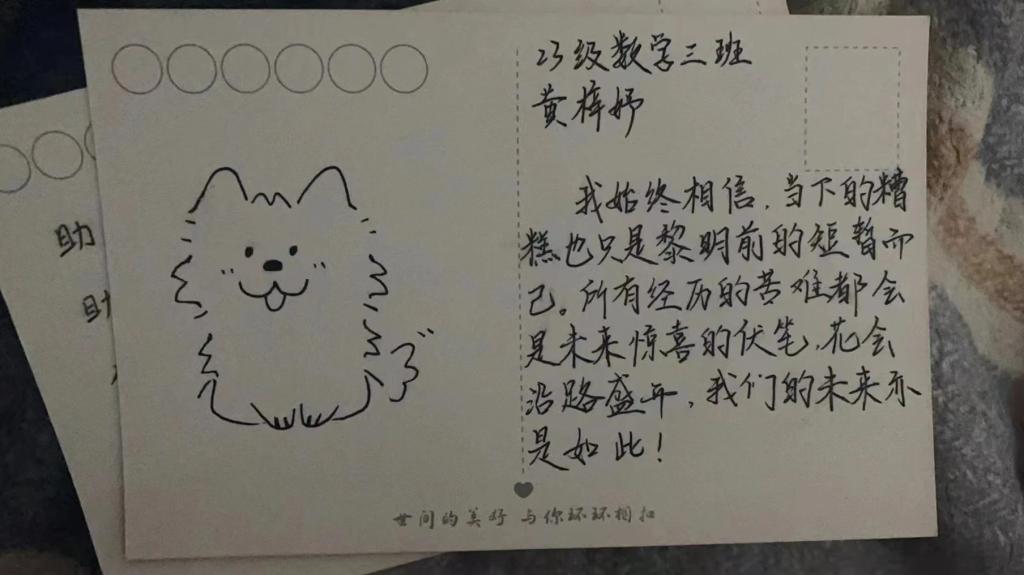 23级数学三班
黄梓妤
我始终相信,当下的糟
糕也只是黎明前的短暂而
已。所有经历的苦难都会
是未来惊喜的伏笔,花会
沿路盛开,我们的未来亦
是如此!
世间的美好 与你环环相扣
助
助